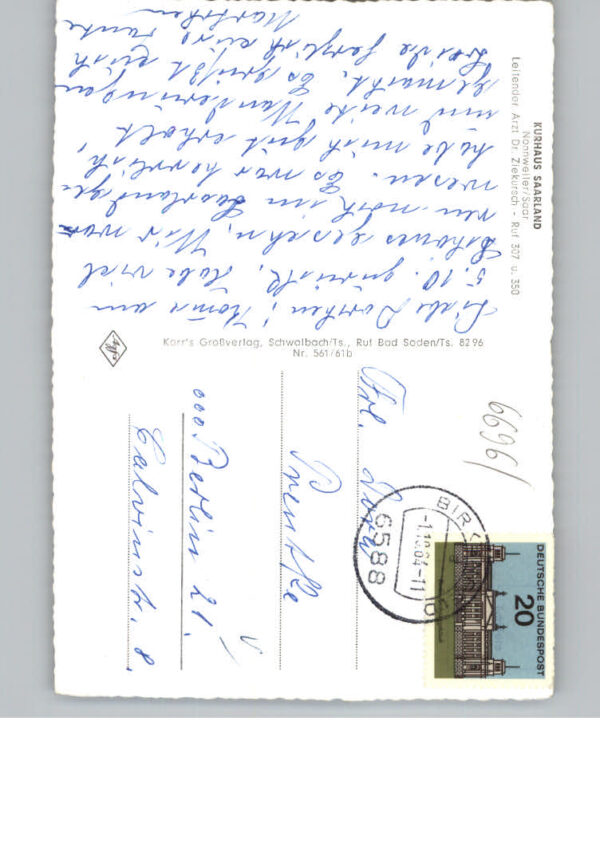 KURHAUS SAARLAND
Nonnweiler/Saar
Leitender Arzt Dr. Ziekursch - Ruf 307 u. 350
Liebe Dorchen! Komme am
5.10. zurück. Habe viel
Schönes gesehn. Wir wa-
ren noch im Saarland ge-
wesen. Es war herrlich,
habe mich gut erholt
und weite Wanderungen
gemacht. Es grüßt euch
beide herzlich eure
Korr's Großverlag, Schwalbach/Ts., Ruf Bad Soden/Ts. 8296
Nr. 561/61b
Agfa
Frl. Dora
1000 Berlin 21.
Calvinstr. 8.
6588
-1.10.64-11
DEUTSCHE BUNDESPOST
20